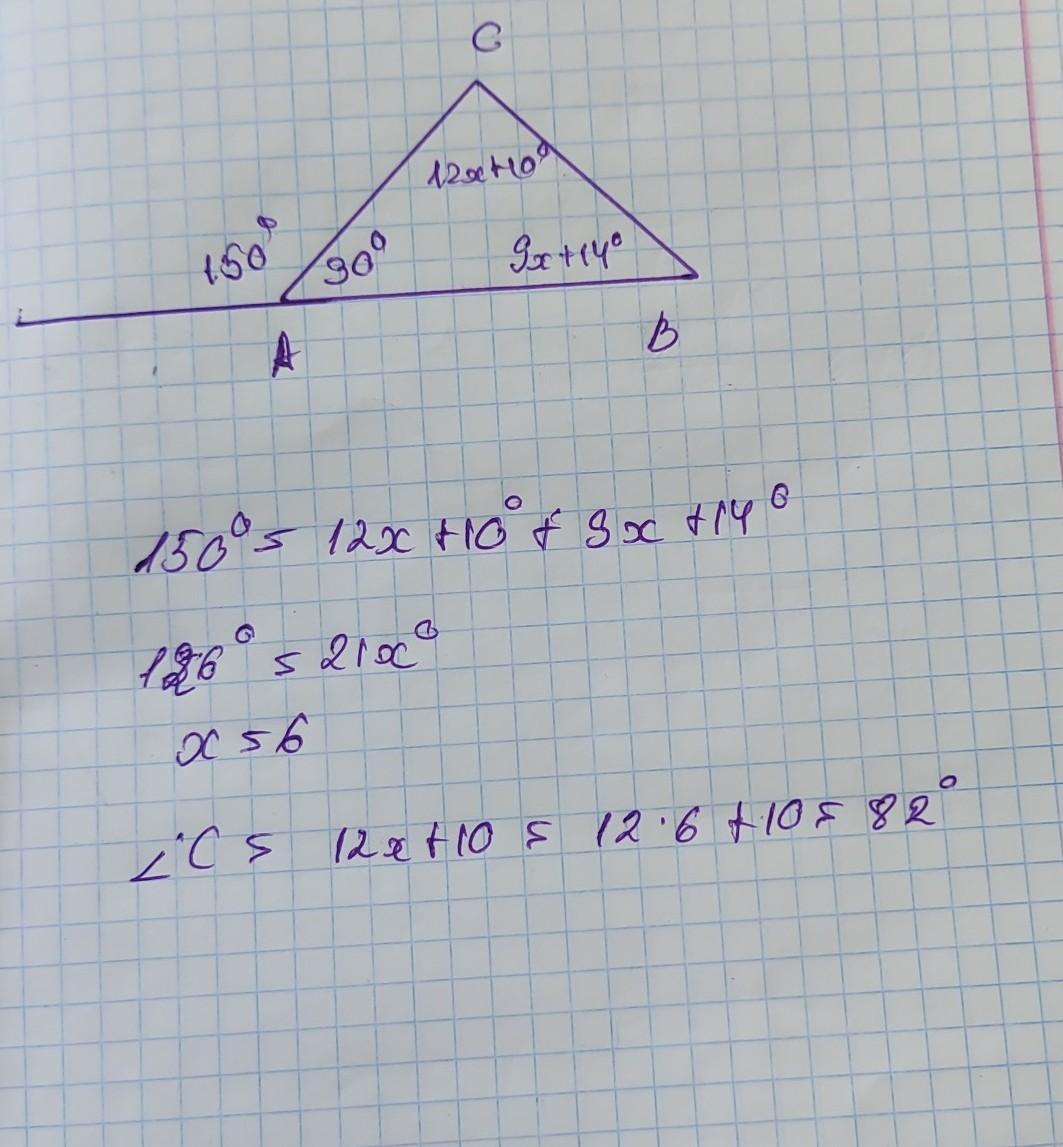 C
12x+10°
150°
30°
9x+14°
A
B
150° = 12x + 10° + 9x + 14°
126° = 21x°
x = 6
∠C = 12x + 10 = 12·6 + 10 = 82°